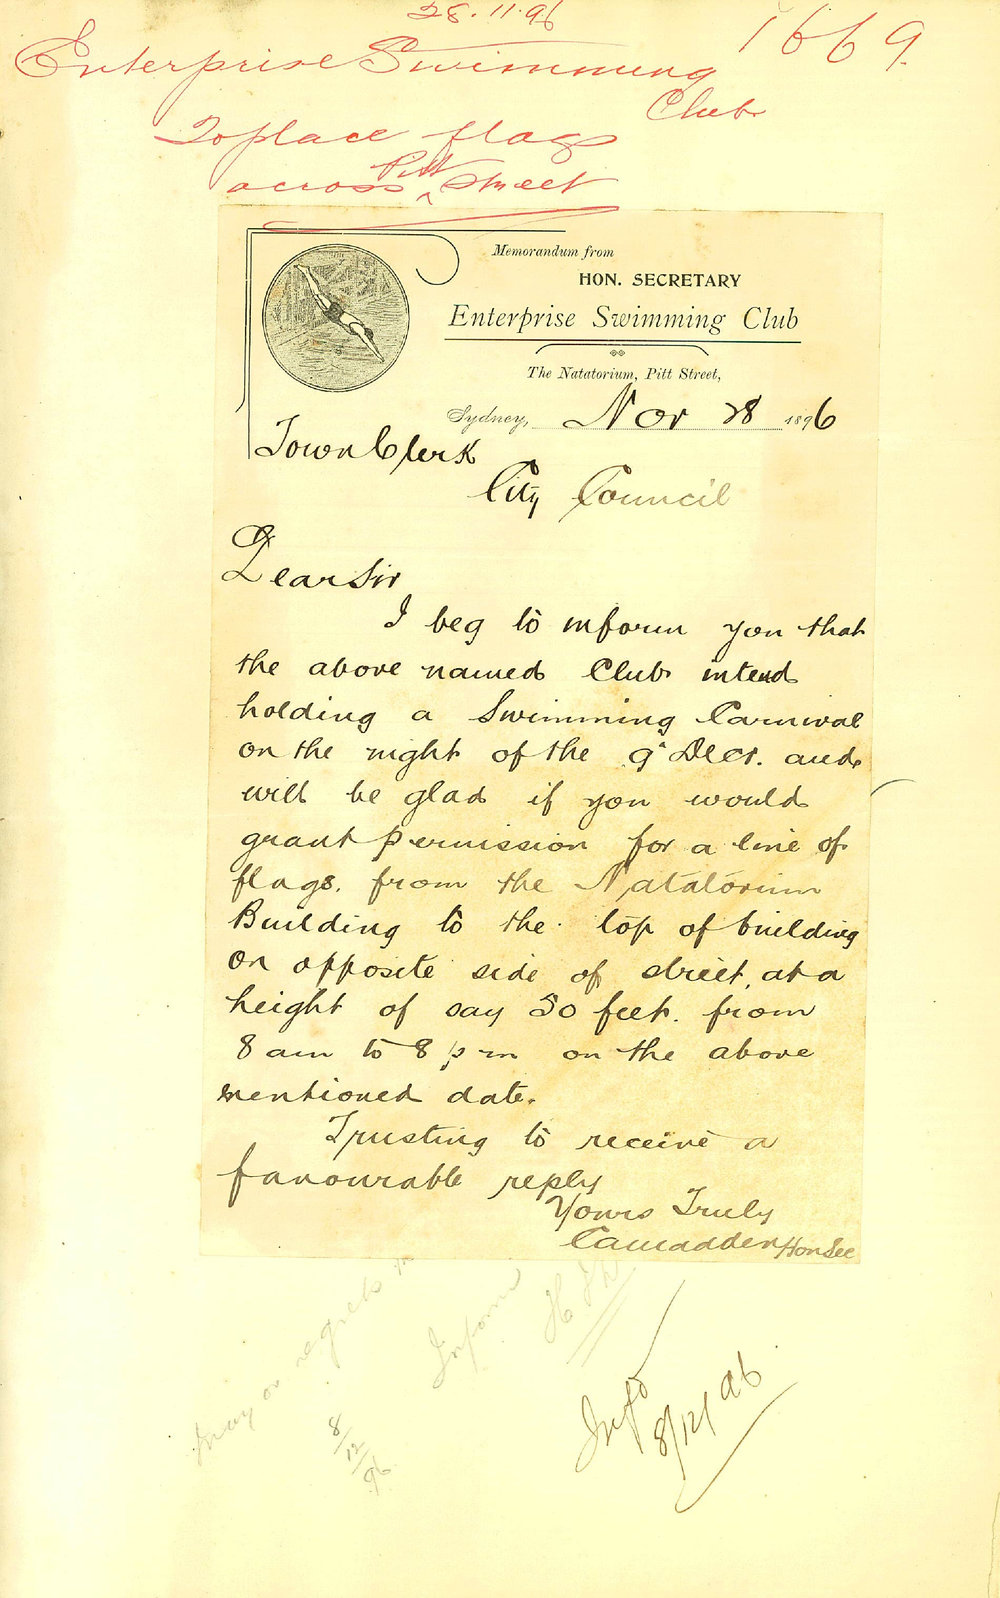 28.11.96
1669
Enterprise Swimming
Club
To place flags
across Pitt Street
Memorandum from
HON. SECRETARY
Enterprise Swimming Club
The Natatorium, Pitt Street,
Sydney, Nov 28 1896
Town Clerk
City Council
Dear Sir
I beg to inform you that
the above named Club intend
holding a Swimming Carnival
on the night of the 9" Decr. and
will be glad if you would
grant permission for a line of
flags. from the Natatorium
Building to the top of building
on opposite side of street, at a
height of say 50 feet. from
8 am to 8 pm on the above
mentioned date.
Trusting to receive a
favourable reply
Yours Truly
Camadden Hon Sec
Mayor regrets
Inform
8/12/96
Infd
8/12/96